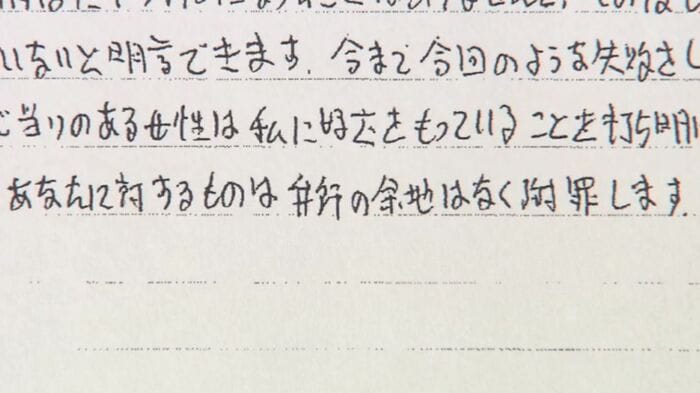 いないと明言できます. 今まで今回のような失敗をし
当りのある女性は私に好意をもっていることを打ち明け
あなたに対するものは弁解の余地はなく謝罪します.